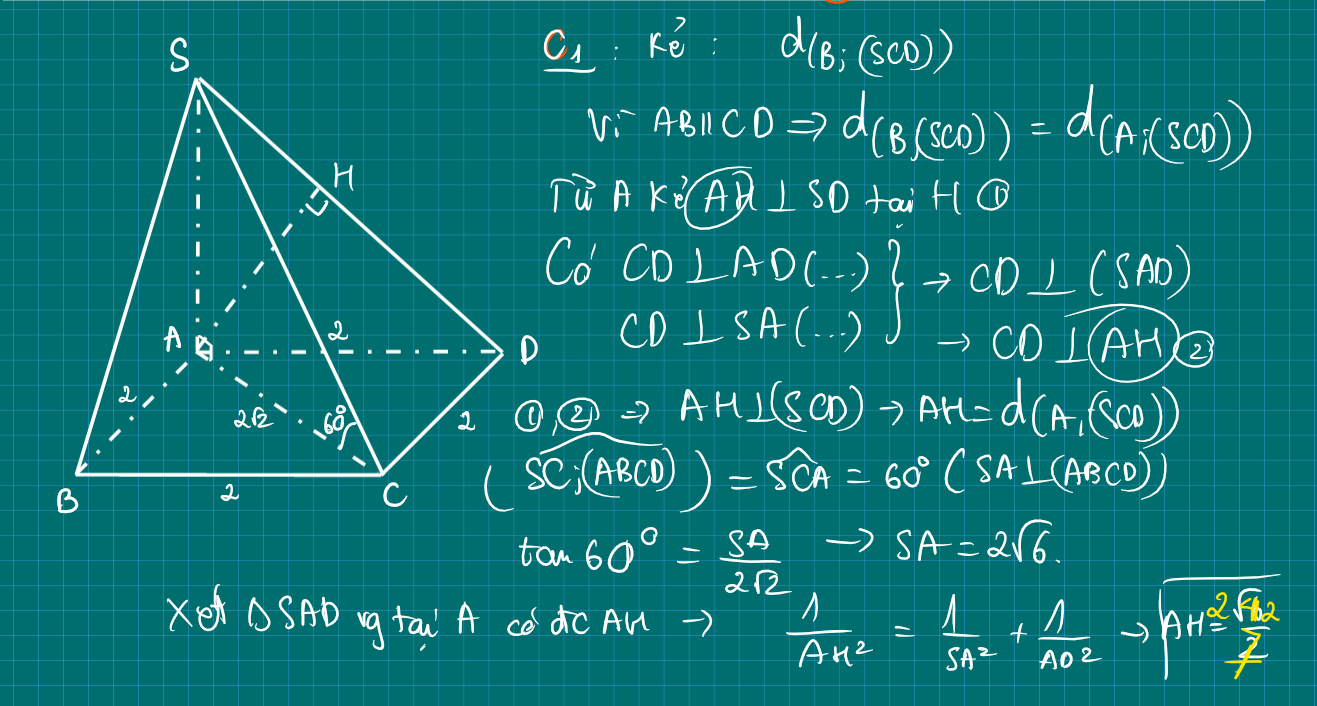 C₁ : Kẻ : d(B; (SCD))
Vì AB || CD => d(B,(SCD)) = d(A;(SCD))
Từ A Kẻ AH ⊥ SD tại H ①
Có CD ⊥ AD (...) } → CD ⊥ (SAD)
CD ⊥ SA (...) → CD ⊥ AH ②
①,② => AH ⊥ (SCD) → AH = d(A,(SCD))
(SC;(ABCD)) = SCA = 60° (SA ⊥ (ABCD))
tan 60° = SA/2√2 → SA = 2√6.
Xét Δ SAD vg tại A có đc AH → 1/AH² = 1/SA² + 1/AD² → AH = 2√42/7
S
H
A
2
D
2
2√2
60°
2
B
2
C